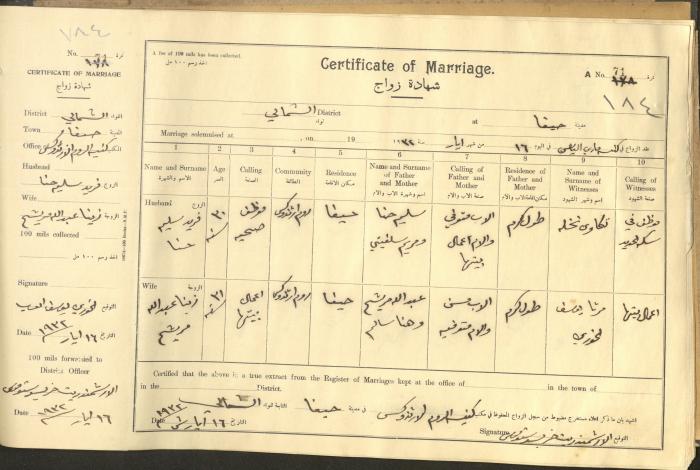 ١٨٤
No. 71 نمرة
CERTIFICATE OF MARRIAGE
شهادة زواج
District الشمالي لواء
Town حيفا المدينة
Office كنيسة الروم الارثوذكس المكتب
Husband
الزوج فريد سليم حنا
Wife
الزوجة زينا عبدالله مريشح
100 mils collected
اخذ رسم ١٠٠ مل
Signature
التوقيع الخوري يوسف
Date ١٦ ايار ١٩٣٢ التاريخ
100 mils forwarded to
District Officer
الارشمندريت
١٦ ايار ٩٣٢
A fee of 100 mils has been collected.
اخذ رسم ١٠٠ مل
Certificate of Marriage.
شهادة زواج
A No. 71 نمرة
١٨٤
الشمالي District لواء
at حيفا مدينة
Marriage solemnised at , on 19
عقد الزواج في كنيسة مار الياس في اليوم ١٦ من شهر ايار سنة ٩٣٢
1 2 3 4 5 6 7 8 9 10
Name and Surname الاسم والشهرة
Age العمر
Calling الصنعة
Community الطائفة
Residence مكان الاقامة
Name and Surname of Father and Mother اسم وشهرة الاب والام
Calling of Father and Mother صنعة الاب والام
Residence of Father and Mother مكان اقامة الاب والام
Name and Surname of Witnesses اسم وشهرة الشهود
Calling of Witnesses صنعة الشهود
Husband الزوج
فريد سليم حنا
٣٠ سنة
موظف صحيه
روم ارثوذكس
حيفا
سليم حنا ومريم
الاب متوفي والام اعمال بيتها
طولكرم
نخله
موظف في سكة حديد
Wife الزوجة
زينا عبدالله مريشح
٣١ سنة
اعمال بيتها
روم ارثوذكس
حيفا
عبدالله مريشح وهنا سالم
الاب والام متوفيه
طولكرم
مرتا يوسف الخوري
اعمال بيتها
Certified that the above is a true extract from the Register of Marriages kept at the office of in the town of
in the District.
اشهد بان ما ذكر اعلاه مستخرج مضبوط من سجل الزواج المحفوظ في مكتب كنيسة الروم الارثوذكس في مدينة حيفا التابعة لواء الشمالي
Date ١٦ ايار سنة ١٩٣٢ التاريخ
Signature الارشمندريت التوقيع